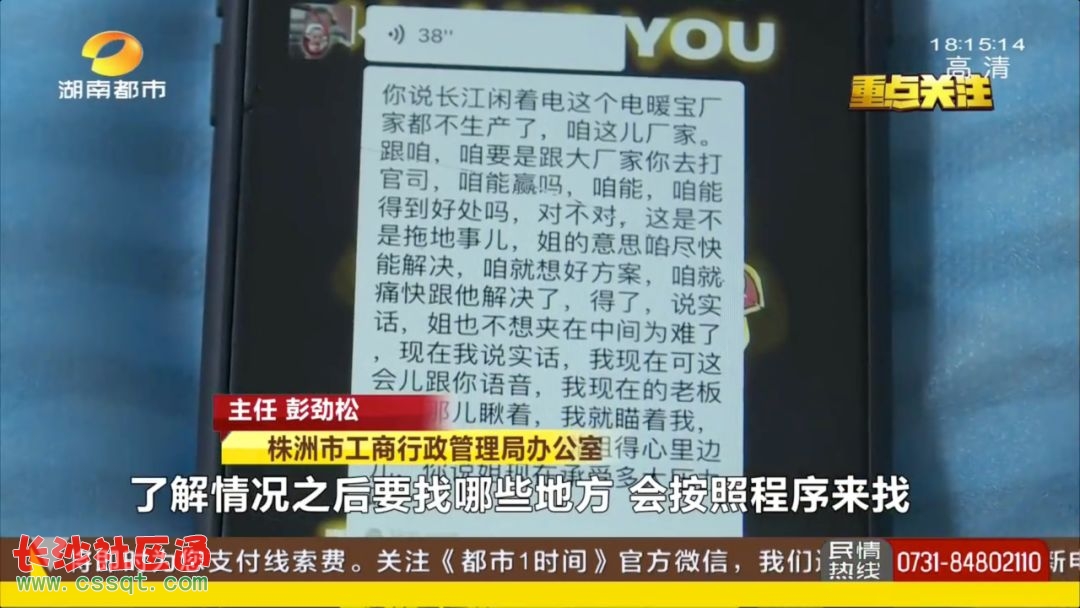 38''
YOU
18:15:14
高清
湖南都市
重点关注
你说长江闲着电这个电暖宝厂
家都不生产了，咱这儿厂家。
跟咱，咱要是跟大厂家你去打
官司，咱能赢吗，咱能，咱能
得到好处吗，对不对，这是不
是拖地事儿，姐的意思咱尽快
能解决，咱就想好方案，咱就
痛快跟他解决了，得了，说实
话，姐也不想夹在中间为难了
，现在我说实话，我现在可这
会儿跟你语音，我现在的老板
那儿瞅着，我就瞄着我，
姐得心里边
儿，你说姐现在承受多大压力
主任 彭劲松
株洲市工商行政管理局办公室
了解情况之后要找哪些地方 会按照程序来找
长沙社区通
www.cssqt.com
支付线索费。关注《都市1时间》官方微信，我们
民情
热线
0731-84802110
新